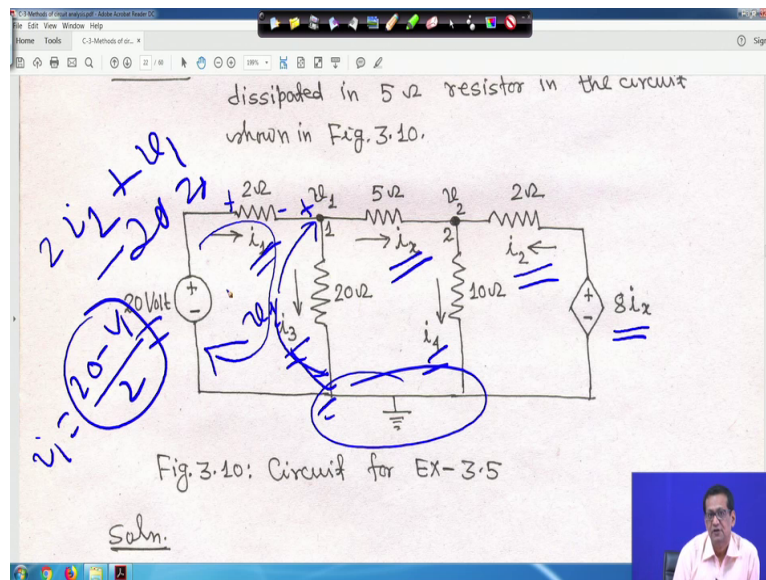 C-3-Methods of circuit analysis.pdf - Adobe Acrobat Reader DC
File Edit View Window Help
Home Tools C-3-Methods of cir... × Sign
22 / 60 199%
dissipated in 5 Ω resistor in the circuit
shown in Fig. 3.10.
2Ω v1 5Ω v2 2Ω
+ - + 1 2
i1 ix i2
20 Volt + - 20Ω 10Ω + - 8ix
i3 i4
v1
2 i1 + v1
-20
i1 = 20-v1/2
Fig. 3.10: Circuit for EX-3.5
Soln.